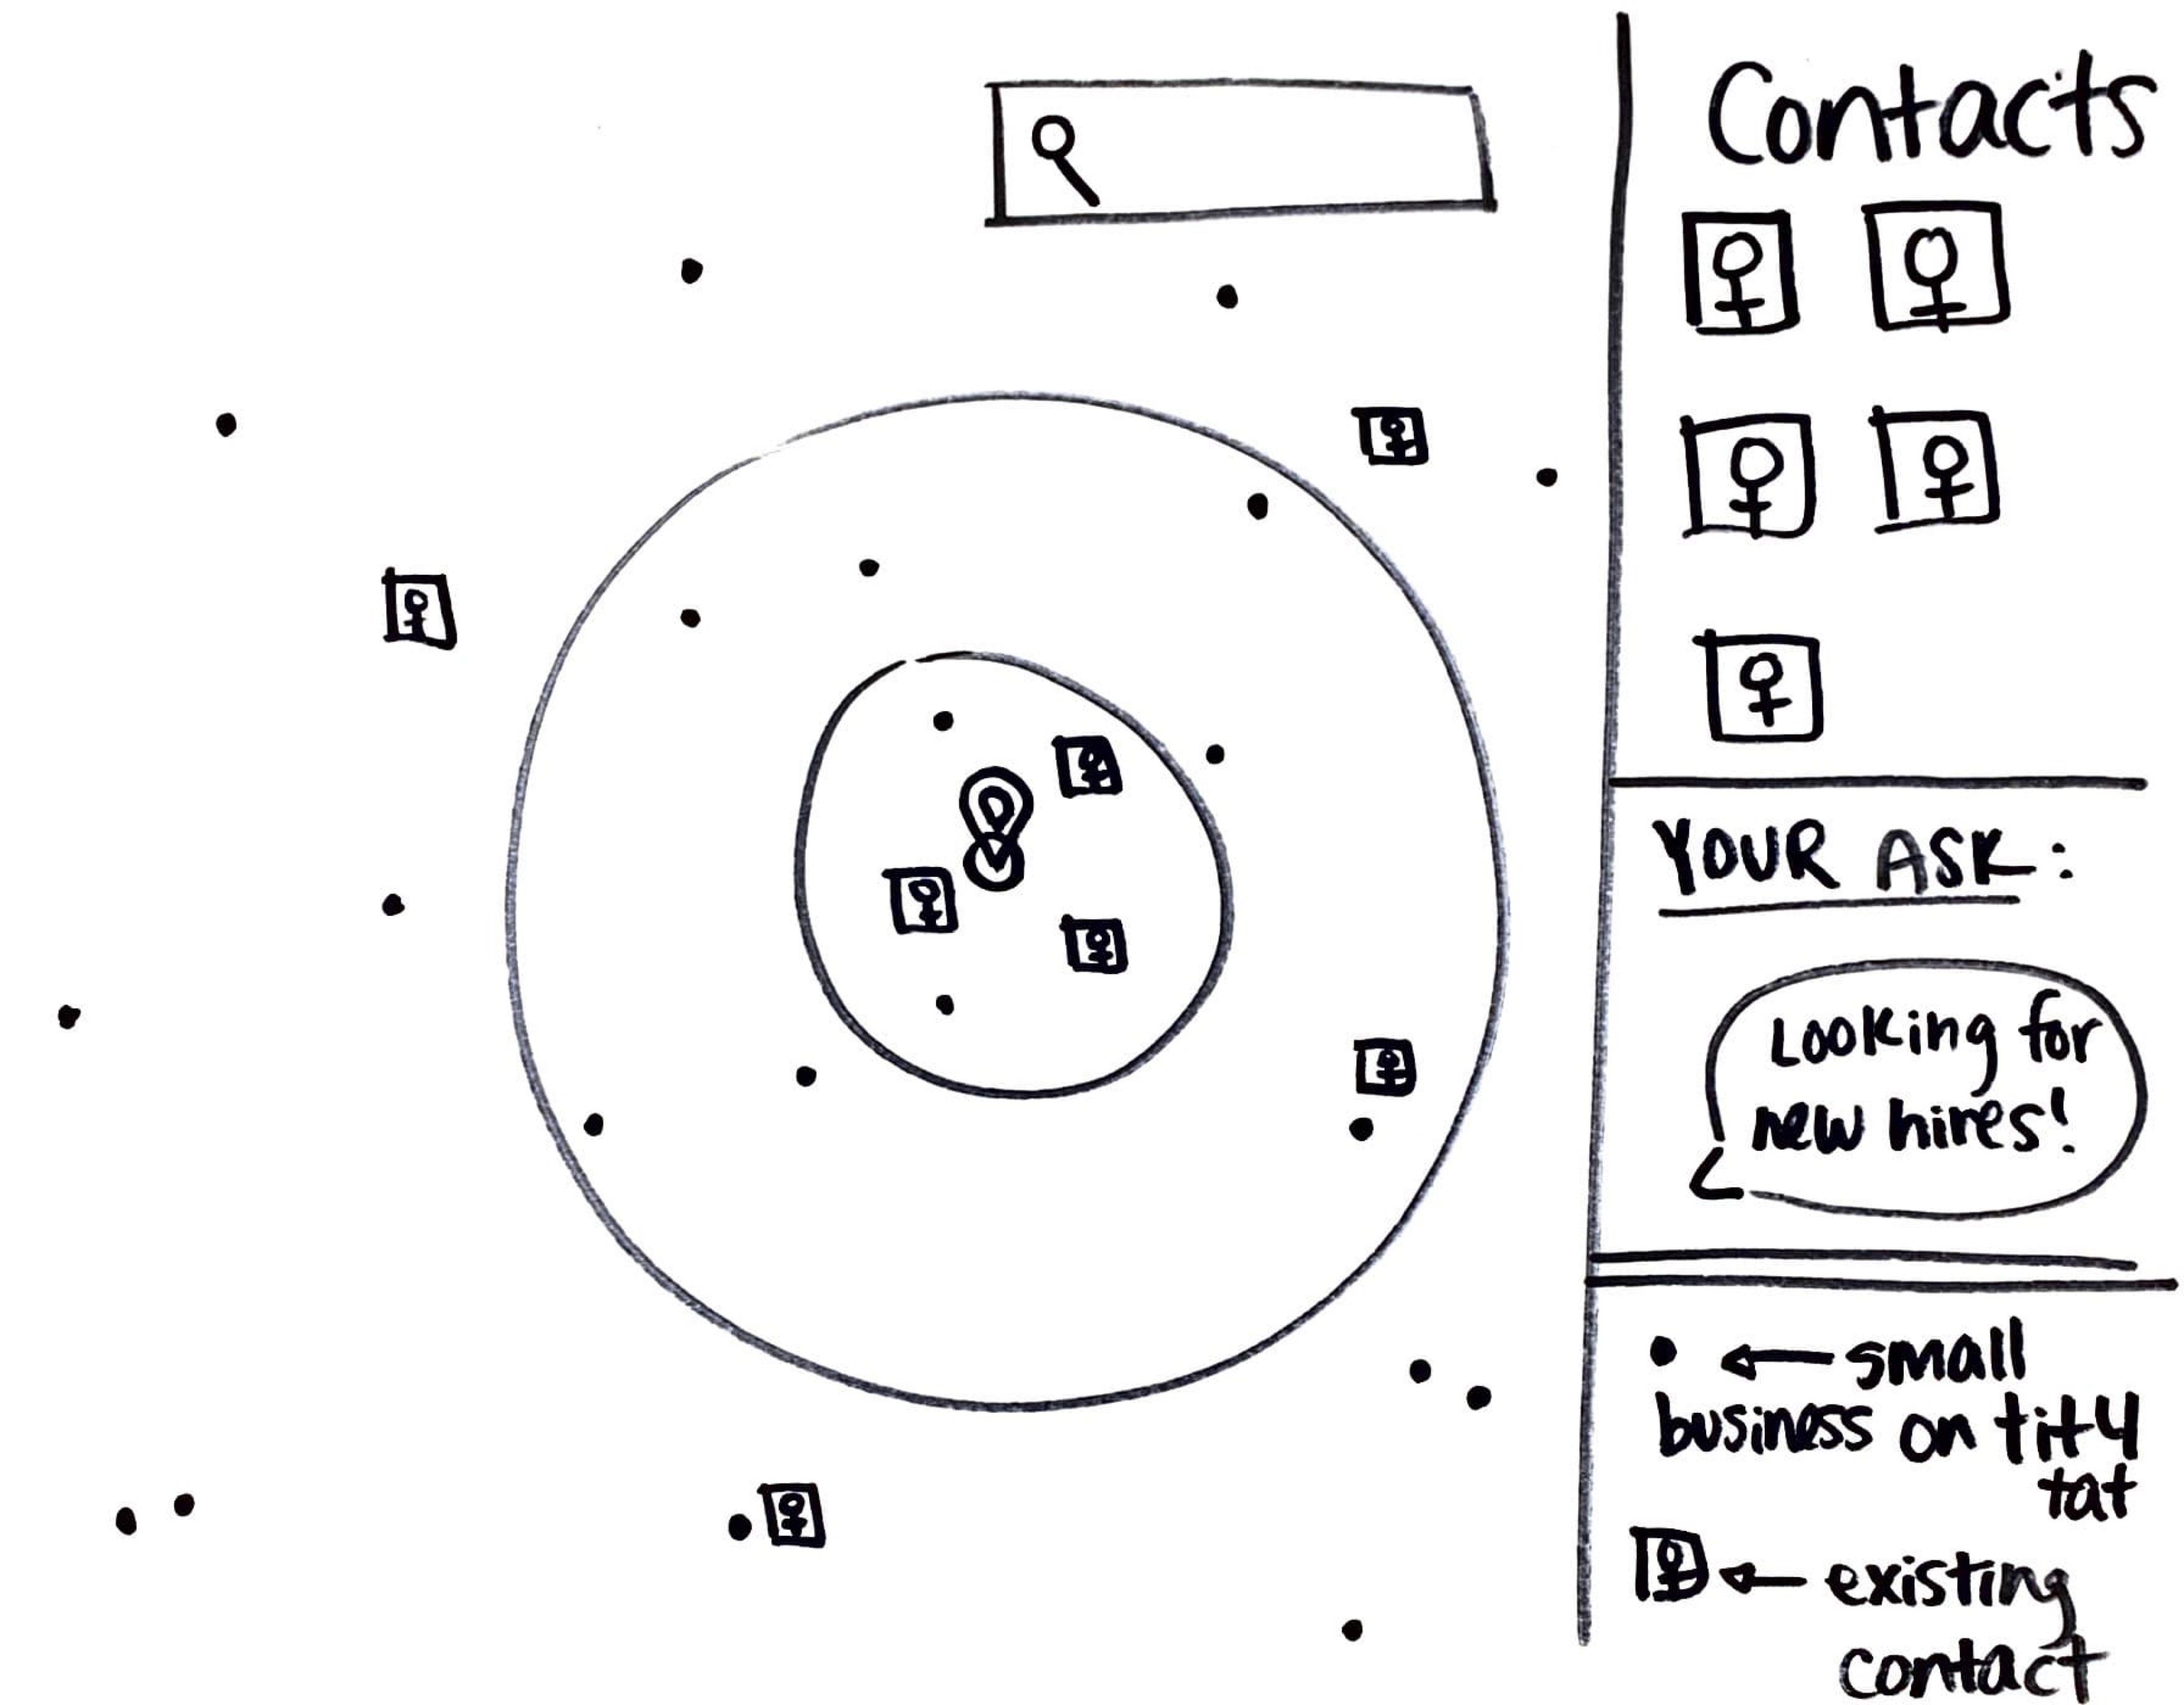 Contacts
YOUR ASK:
Looking for
new hires!
small
business on tit4
tat
existing
contact